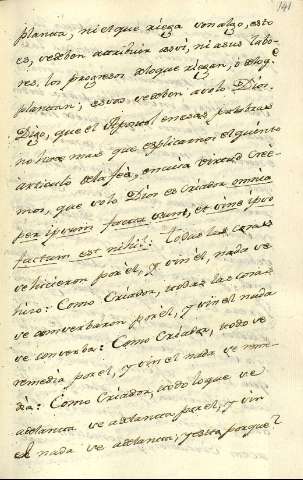 141
planta, ni el que riega son algo, esto
es, se deben atribuir assi, ni a sus labo-
res, los progresos de lo que riegan, ò de lo q.
plantan; essos se deben a solo Dios.
Digo, que el Apostol en esas palabras
no hizo mas que explicarnos el quinto
articulo de la feè, en cuia virtud creè-
mos, que solo Dios es Criador, omnia
per ipsum facta sunt, et sine ipso
factum est nihil: Todas las cosas
se hicieron por èl, y sin èl, nada se
hizo: Como Criador, todas las cosas
se conserbaron por el, y sin el nada
se conserba: Como Criador, todo se
remedia por el, y sin el nada se reme-
dia: Como Criador, todo lo que se
adelanta se adelanta por el; y sin
el nada se adelanta; y esto porque?